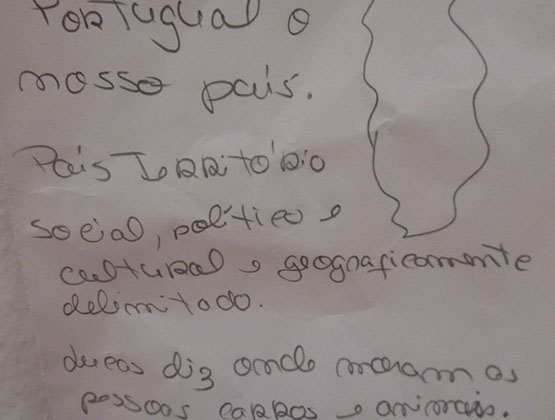 Portugual o
nosso país.
País Território
social, político e
cultural e geograficamente
delimitado.
ducas diz onde moram as
pessoas carros e animais.